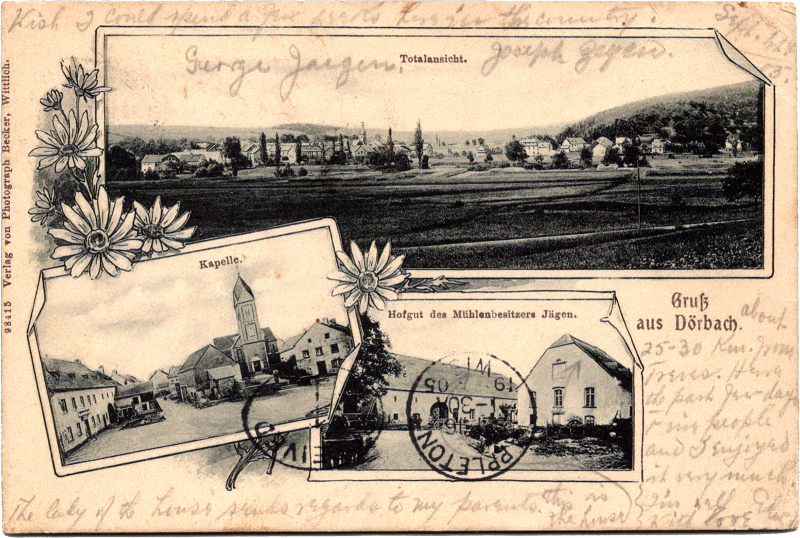 Wish I could spend a few weeks here in the country.
Sept.
George Jaegen.
Joseph
Totalansicht.
98415 Verlag von Photograph Becker, Wittlich.
Kapelle.
Hofgut des Mühlenbesitzers Jägen.
Gruß
aus Dörbach.
about
25-30 Km. from
Treves.
the past few days
people
and I enjoyed
it very much
I'm well
with love
APPLETON
VI
19 05
RECEIVE
The lady of the house sends regards to my parents. this is
the house